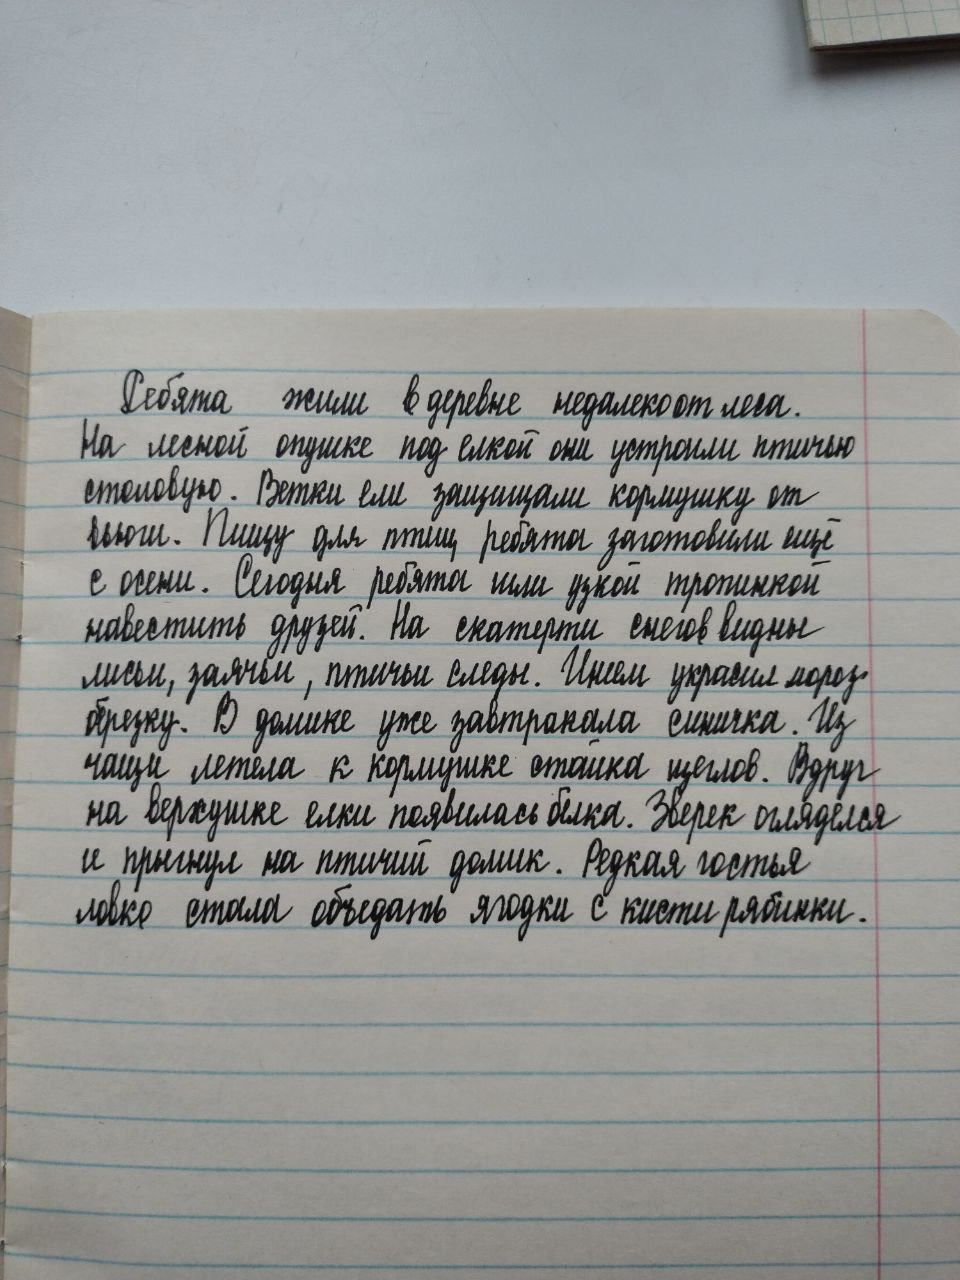 Ребята жили в деревне недалеко от леса.
На лесной опушке под елкой они устроили птичью
столовую. Ветки ели защищали кормушку от
вьюги. Пищу для птиц ребята заготовили ещё
с осени. Сегодня ребята шли узкой тропинкой
навестить друзей. На скатерти снегов видны
лисьи, заячьи, птичьи следы. Инеем украсил мороз
березку. В домике уже завтракала синичка. Из
чащи летела к кормушке стайка щеглов. Вдруг
на верхушке елки появилась белка. Зверек огляделся
и прыгнул на птичий домик. Редкая гостья
ловко стала объедать ягодки с кисти рябинки.